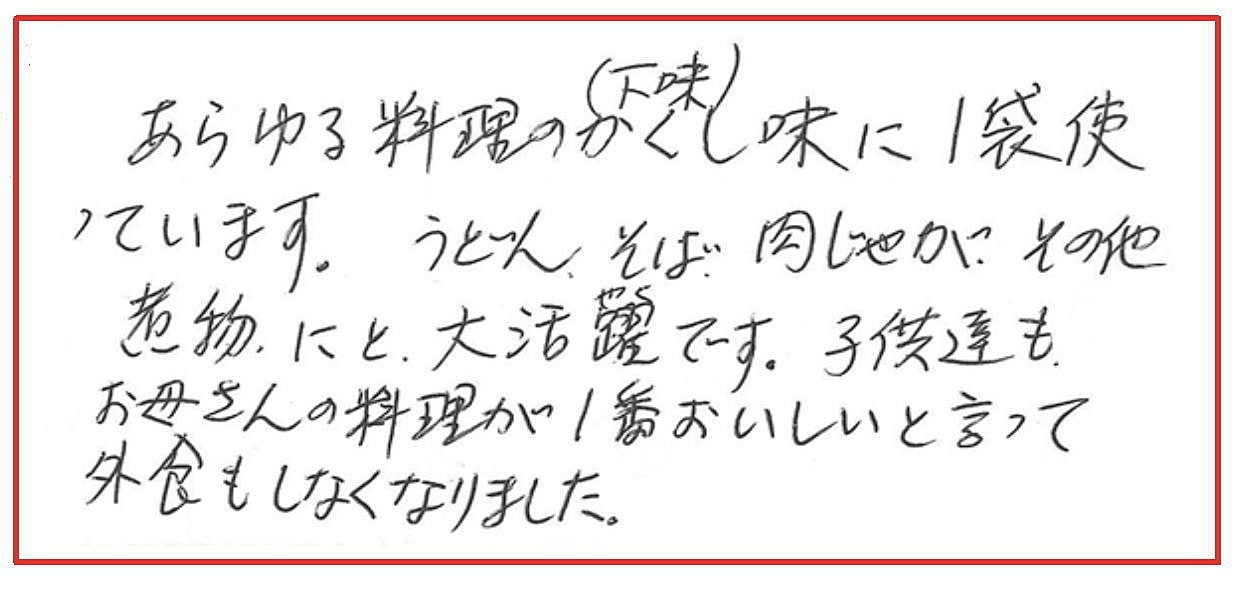 (下味)
あらゆる料理のかくし味に1袋使
っています。 うどん、そば、肉じゃが、その他
煮物、にと、大活躍です。子供達も、
お母さんの料理が1番おいしいと言って
外食もしなくなりました。